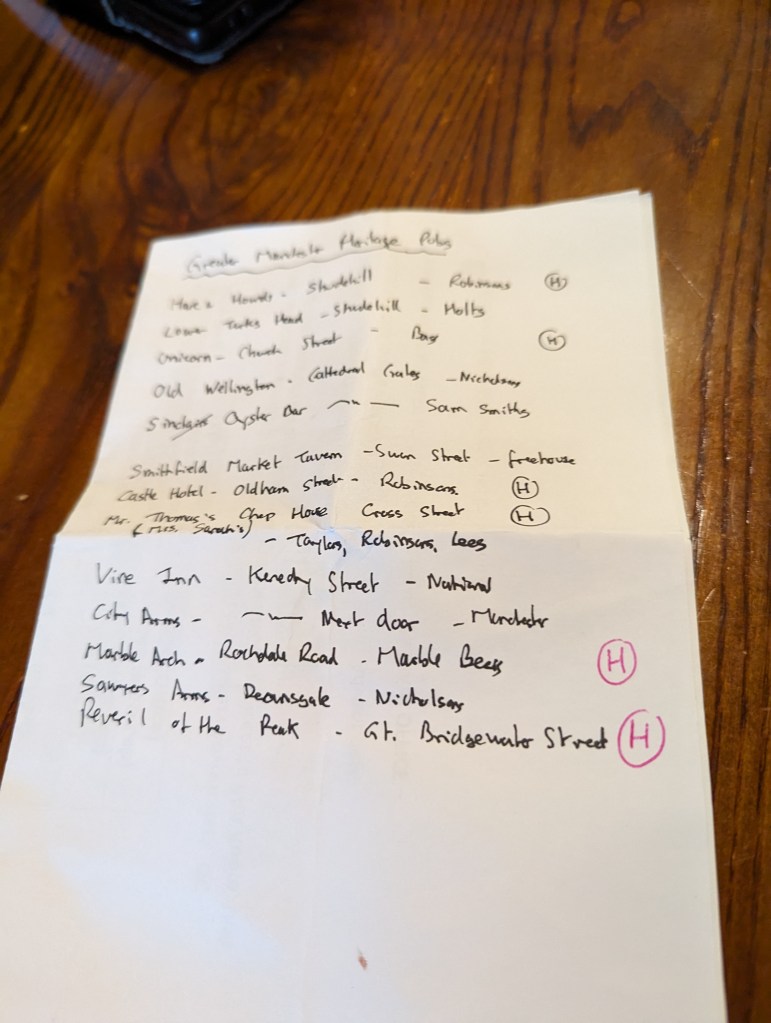 Greater Manchester Heritage Pubs
Hare & Hounds - Shudehill - Robinsons (H)
Lower Turks Head - Shudehill - Holts
Unicorn - Church Street - Bass (H)
Old Wellington - Cathedral Gates - Nicholsons
Sinclairs Oyster Bar — " — Sam Smiths
Smithfield Market Tavern - Swan Street - freehouse
Castle Hotel - Oldham Street - Robinsons (H)
Mr. Thomas's Chop House Cross Street (H)
(Mrs. Sarah's) - Taylors, Robinsons, Lees
Vine Inn - Kenedy Street - National
City Arms - — " — Next door - Manchester
Marble Arch - Rochdale Road - Marble Beers (H)
Sawyers Arms - Deansgate - Nicholsons
Peveril of the Peak - Gt. Bridgewater Street (H)